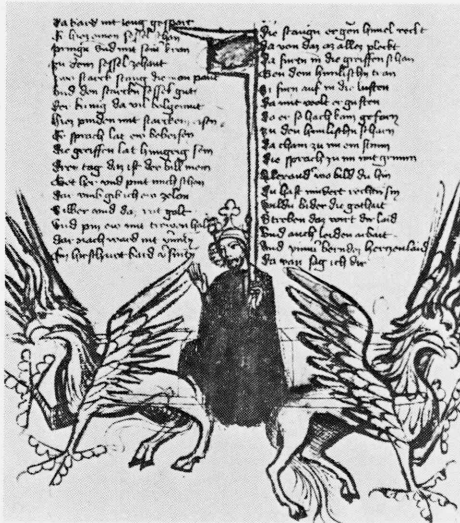 da ward nit leng gespart
Er hiez einen sessel
pringn vnd mit sein kran
zu dem sessel zehant
starck stang die man pant
vnd den starcken sessel gut
der kunig da vil wolgemut
hiez pinden mit starcken eisen
Er sprach lat ew beweisen
die greiffen lat hungrig sein
drey tag daz ist der will mein
Get her vnd pint mich schon
dar vmb gib ich ew zelon
Silber vnd daz rot golt
vnd pin ew mit trewen holt
dar nach ward mit
Ein
die stangn er gen himel rekt
da von daz az alles plekt
da furn in die greiffen schan
Von dem himlischn tran
Si furn auf in die luften
da mit wolt er gusten
do er so hach kam gefarn
zu den himlischn scharn
da cham zu im ein stimm
die sprach zu im mit grimm
Alexand wo wild du hin
du hast nindert rechten sin
wildu wider die gothait
Streben daz wirt dir laid
Vnd auch leiden arbait
Vnd hertzenlaid
da van sag ich dir